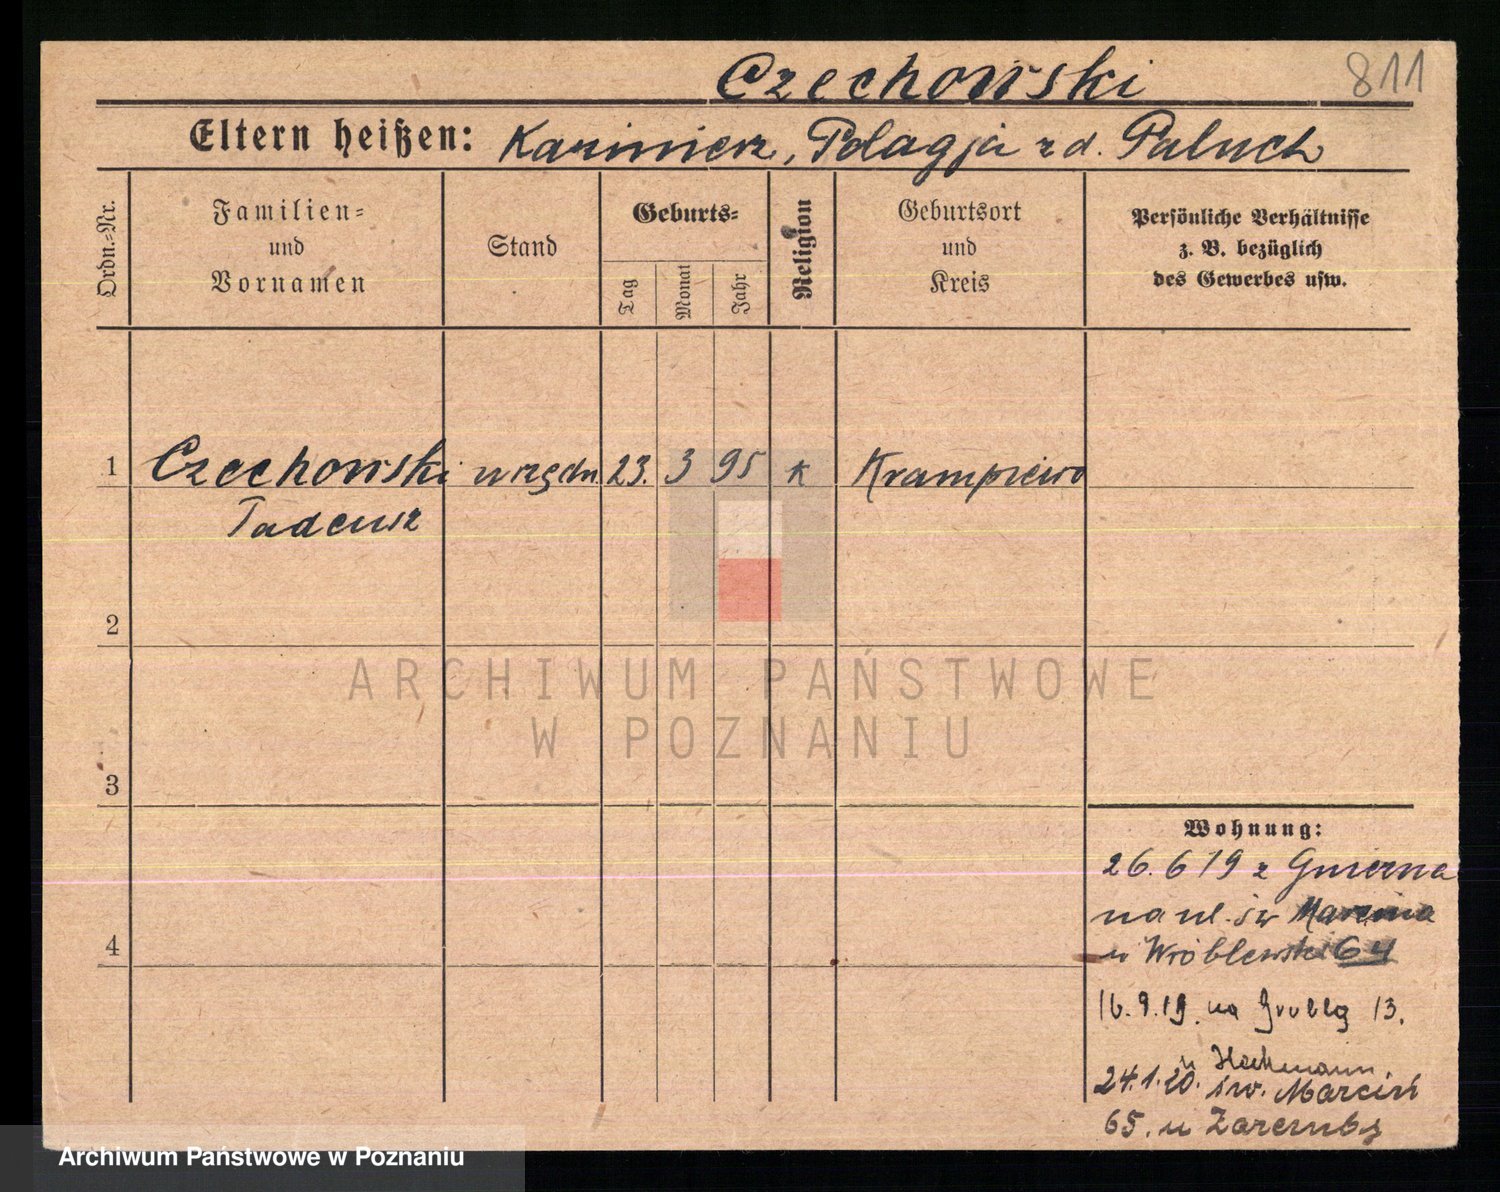 Czechowski
811
Eltern heißen: Kazimierz, Pelagja z d. Paluch
Ordn.-Nr.
Familien-
und
Vornamen
Stand
Geburts-
Tag
Monat
Jahr
Religion
Geburtsort
und
Kreis
Persönliche Verhältnisse
z. B. bezüglich
des Gewerbes usw.
1 Czechowski urzędn. 23. 3 95 k Krampiewo
Tadeusz
2
3
4
Wohnung:
26. 6 19 z Gniezna
na ul. św Marcina
u Wróblewski 64
16. 9. 19. na Groblę 13.
u Hackmann.
24. 1. 20. św. Marcin
65. u Zaremby
ARCHIWUM PAŃSTWOWE
W POZNANIU
Archiwum Państwowe w Poznaniu